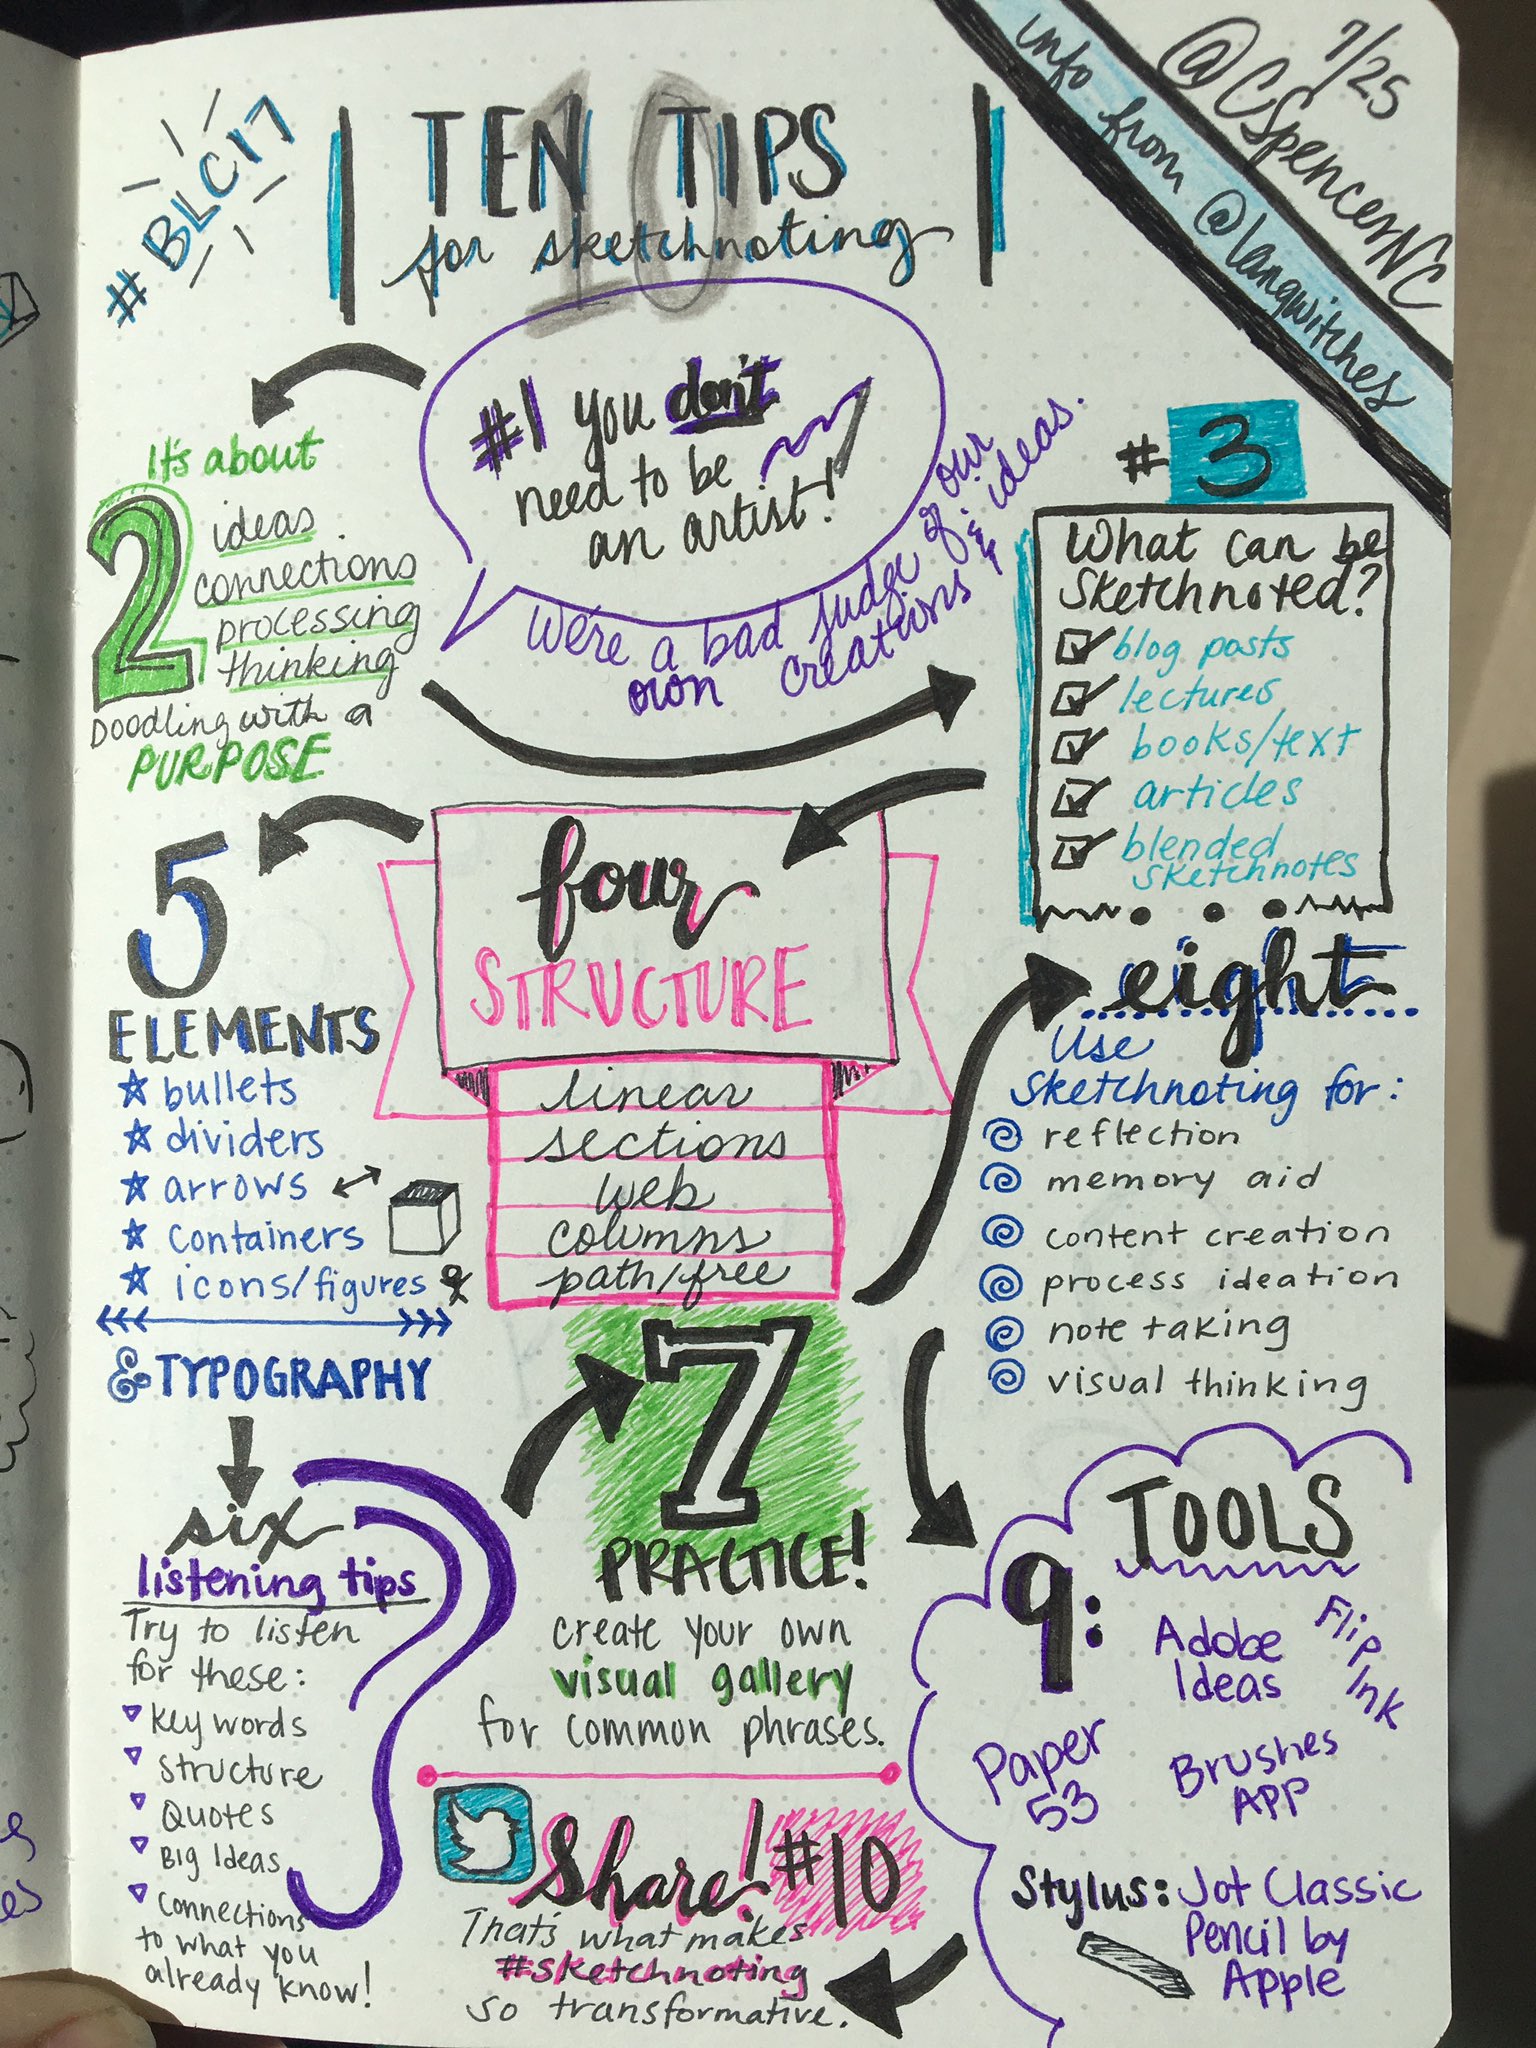 #BLC17
TEN TIPS
10
for sketchnoting
7/25
@CSpencerNC
info from @langwitches
#1 you don't
need to be
an artist!
We're a bad judge of our
own creations & ideas.
It's about
2
ideas
connections
processing
thinking
Doodling with a
PURPOSE
#3
What can be
Sketchnoted?
blog posts
lectures
books/text
articles
blended
sketchnotes
four
STRUCTURE
linear
sections
web
columns
path/free
5
ELEMENTS
bullets
dividers
arrows
containers
icons/figures
& TYPOGRAPHY
six
listening tips
Try to listen
for these:
Key words
Structure
Quotes
Big Ideas
Connections
to what you
already know!
7
PRACTICE!
create your own
visual gallery
for common phrases.
eight
Use
Sketchnoting for:
reflection
memory aid
content creation
process ideation
note taking
visual thinking
TOOLS
9:
Adobe
Ideas
Flip
Ink
Paper
53
Brushes
APP
Stylus: Jot Classic
Pencil by
Apple
Share! #10
That's what makes
#sketchnoting
so transformative.